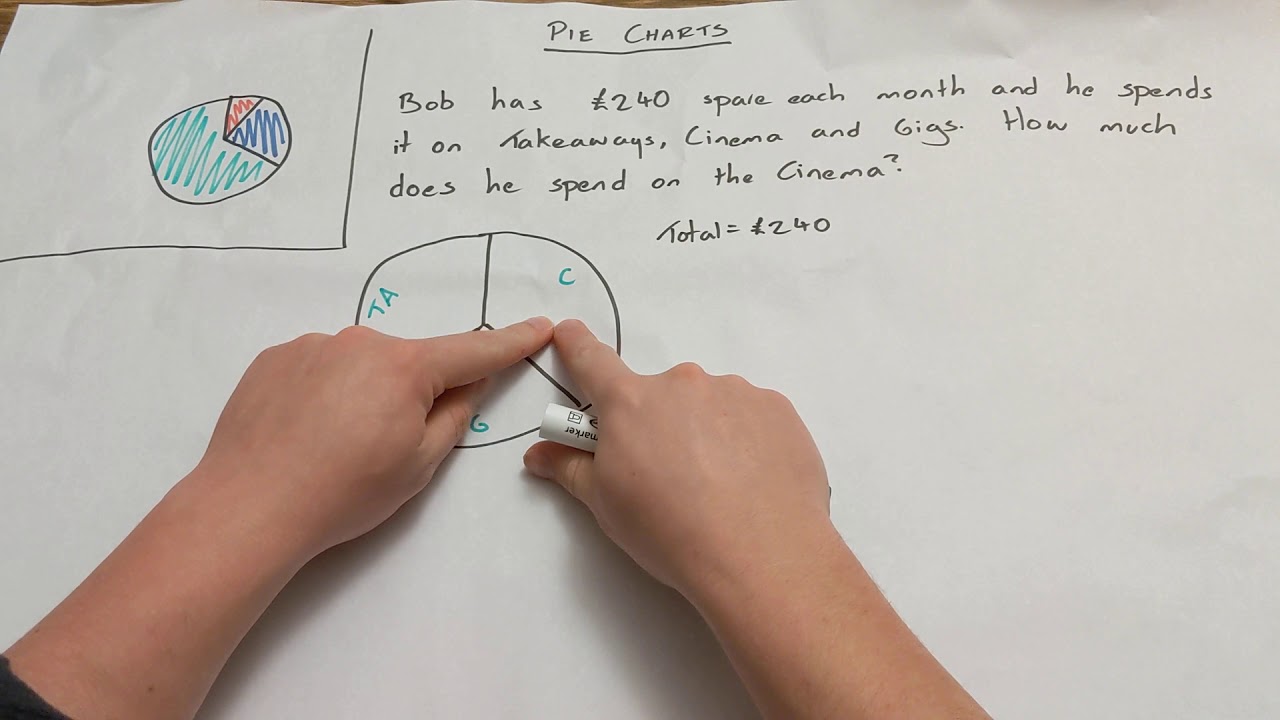 PIE CHARTS
Bob has £240 spare each month and he spends
it on Takeaways, Cinema and Gigs. How much
does he spend on the Cinema?
Total = £240
C
TA
G
marker